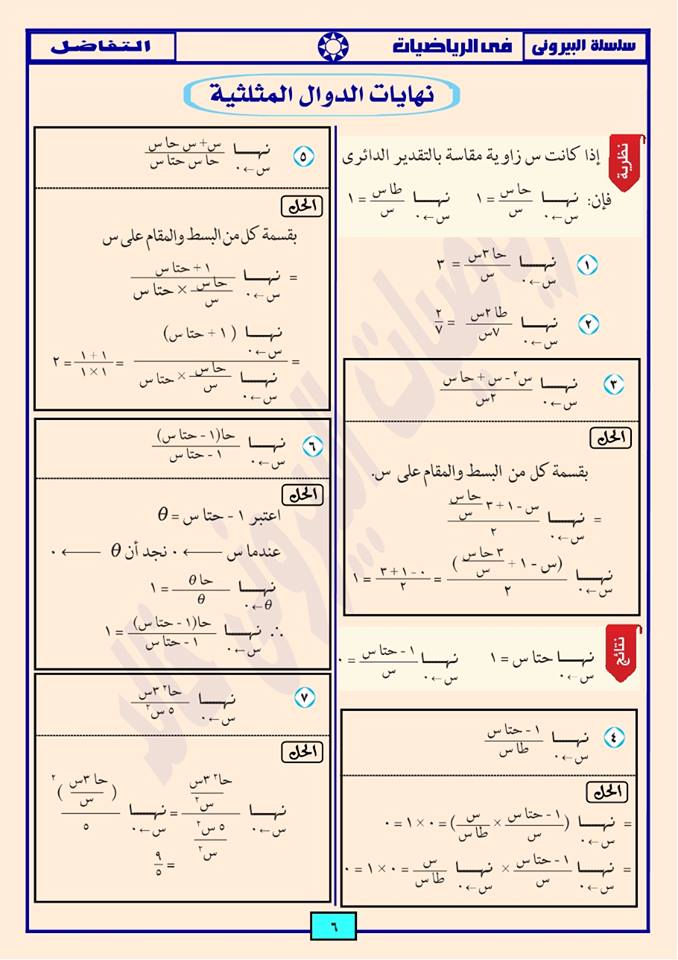 سلسلة البيرونى
فى الرياضيات
التفاضل
نهايات الدوال المثلثية
نظرية
إذا كانت س زاوية مقاسة بالتقدير الدائرى
فإن: نهـــا س←٠ حا س / س = ١ نهـــا س←٠ طا س / س = ١
١ نهـــا س←٠ حا ٣س / س = ٣
٢ نهـــا س←٠ طا ٢س / ٧س = ٢/٧
٣ نهـــا س←٠ س٢ - س + حا س / ٢س
الحل
بقسمة كل من البسط والمقام على س.
= نهـــا س←٠ س - ١ + ٣ حا س/س / ٢
نهـــا س←٠ (س - ١ + ٣ حا س/س) / ٢ = ٠ - ١ + ٣ / ٢ = ١
نتائج
نهـــا س←٠ حتا س = ١ نهـــا س←٠ ١ - حتا س / س = ٠
٤ نهـــا س←٠ ١ - حتا س / طا س
الحل
= نهـــا س←٠ (١ - حتا س / س × س / طا س) = ٠ × ١ = ٠
= نهـــا س←٠ ١ - حتا س / س × نهـــا س←٠ س / طا س = ٠ × ١ = ٠
٥ نهـــا س←٠ س + س حا س / حا س حتا س
الحل
بقسمة كل من البسط والمقام على س
= نهـــا س←٠ ١ + حتا س / حا س/س × حتا س
= نهـــا س←٠ (١ + حتا س) / نهـــا س←٠ حا س/س × حتا س = ١ + ١ / ١ × ١ = ٢
٦ نهـــا س←٠ حا(١ - حتا س) / ١ - حتا س
الحل
اعتبر ١ - حتا س = θ
عندما س ← ٠ نجد أن θ ← ٠
نهـــا θ←٠ حا θ / θ = ١
∴ نهـــا س←٠ حا(١ - حتا س) / ١ - حتا س = ١
٧ نهـــا س←٠ حا٢ ٣س / ٥ س٢
الحل
نهـــا س←٠ حا٢ ٣س/س٢ / ٥ س٢/س٢ = نهـــا س←٠ (حا ٣س / س)٢ / ٥
= ٩/٥
٦